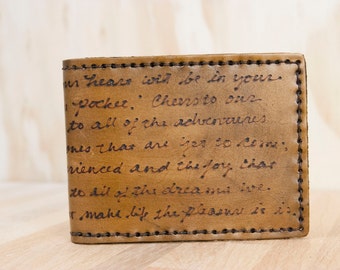 heart will be in your
pocket. Cheers to our
to all of the adventures
ones that are yet to come,
rienced and the joy that
to all of the dreams we
make life the pleasure it is